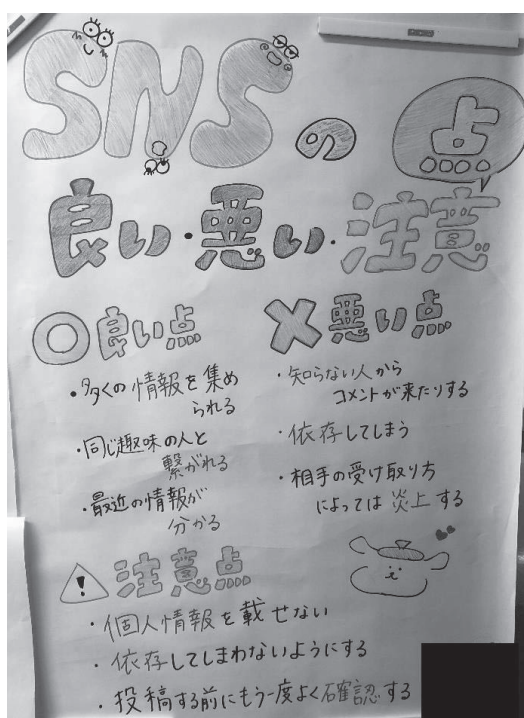 SNSの
良い・悪い・注意点
○良い点
・多くの情報を集め
られる
・同じ趣味の人と
繋がれる
・最近の情報が
分かる
×悪い点
・知らない人から
コメントが来たりする
・依存してしまう
・相手の受け取り方
によっては炎上する
⚠注意点
・個人情報を載せない
・依存してしまわないようにする
・投稿する前にもう一度よく確認する